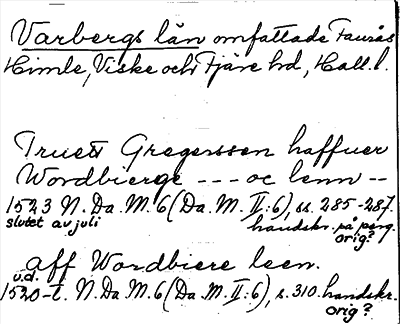 Varbergs län omfattade Faurås
Himle, Viske och Fjäre hd, Hall. l.
Truett Gregerssen haffuer
Wordbierge --- oc lenn --
1523 N. Da. M. 6 (Da. M. II:6), ss. 285-287.
slutet av juli handskr. på perg.
orig?
aff Wordbiere leen.
u.d.
1520-t. N. Da. M. 6 (Da. M. II:6), s. 310. handskr.
orig?